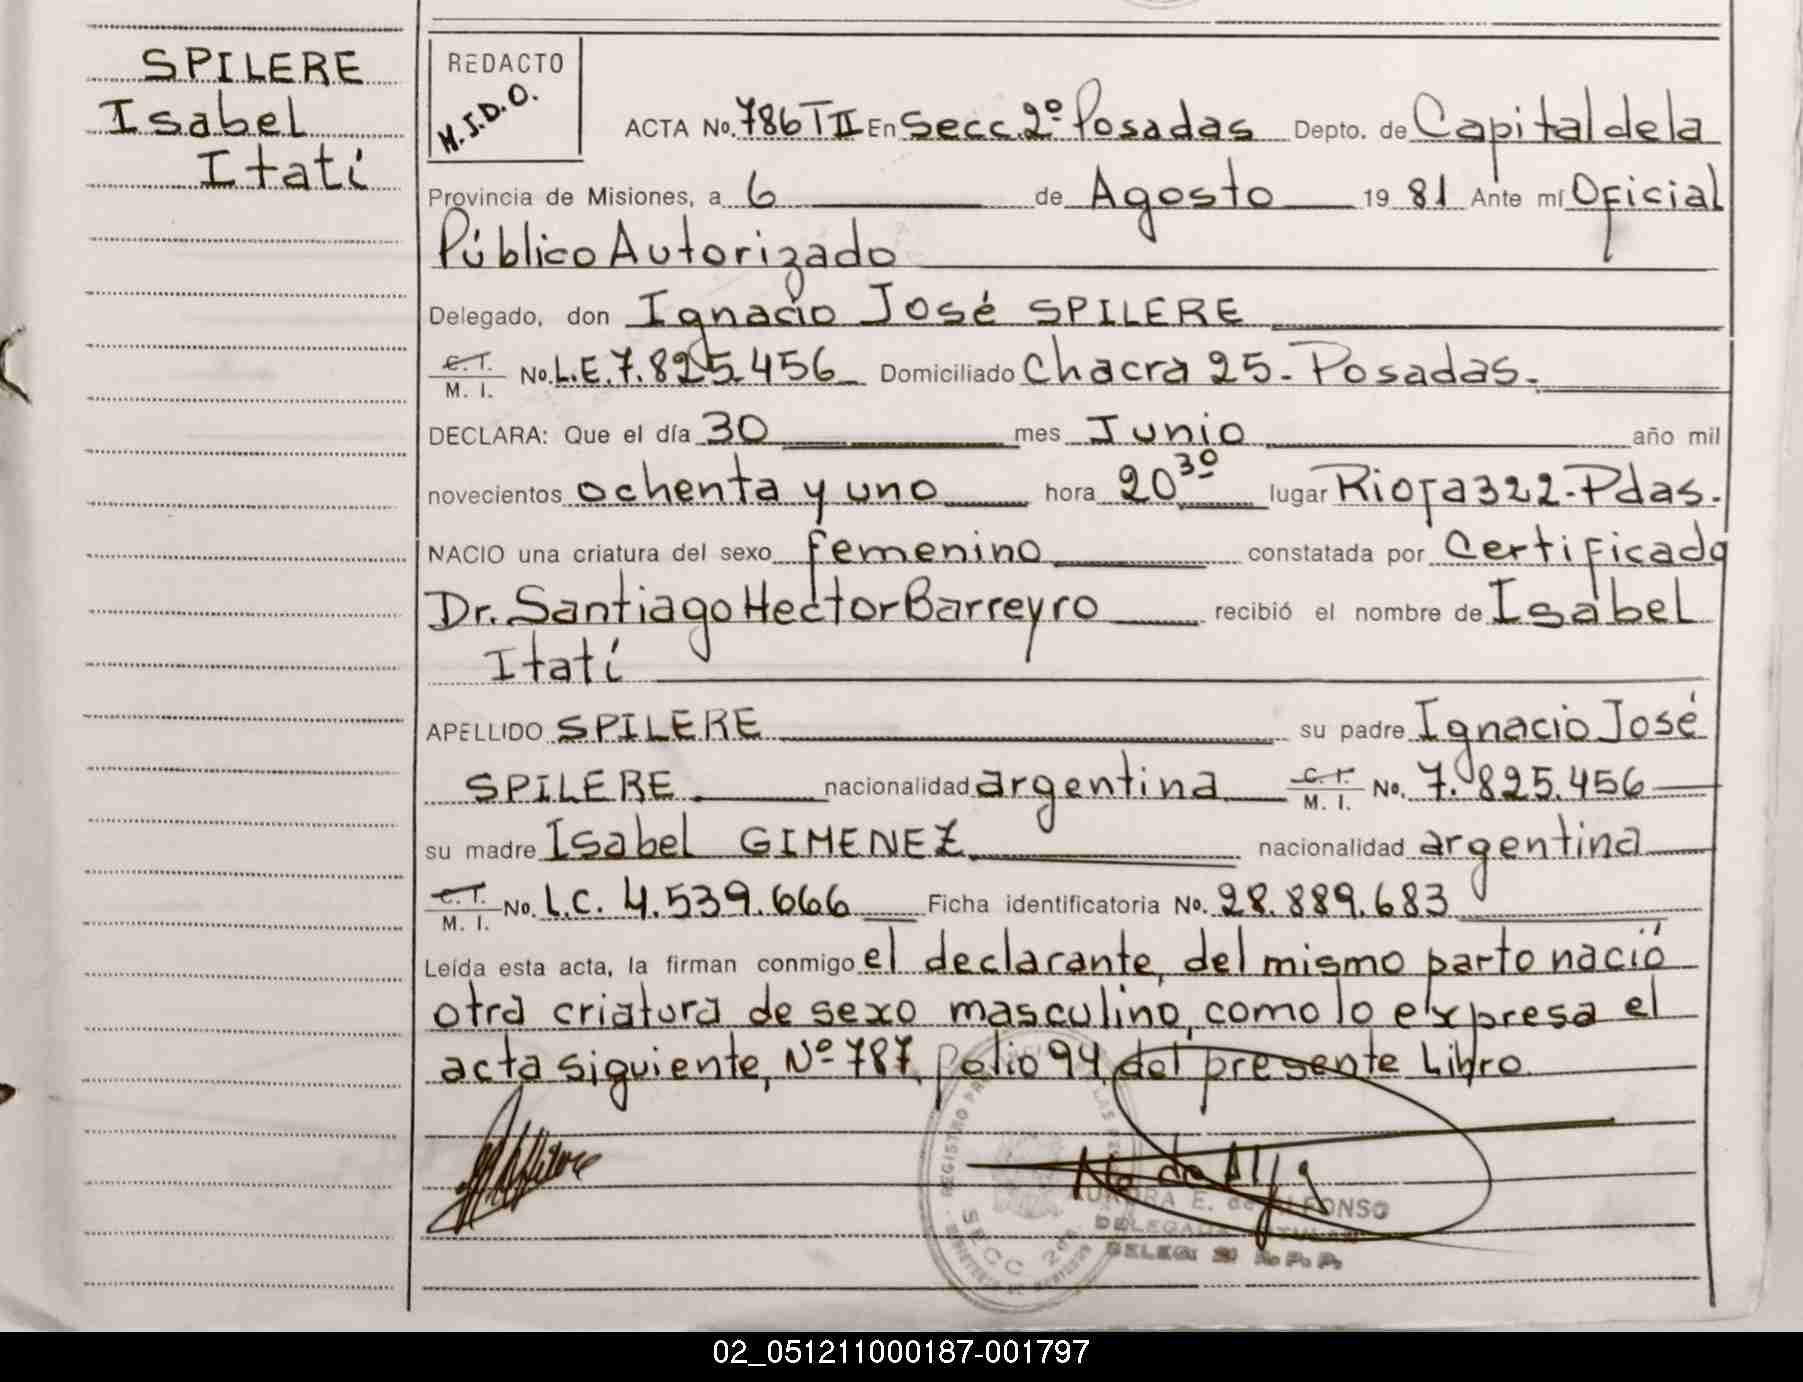 SPILERE
Isabel
Itatí
REDACTO
M.I.D.O.
ACTA No. 786 T II En Secc. 2º Posadas Depto. de Capital de la
Provincia de Misiones, a 6 de Agosto 19 81 Ante mí Oficial
Público Autorizado
Delegado, don Ignacio José SPILERE
C. I. M. I. No. L.E. 7.825.456 Domiciliado Chacra 25 - Posadas.
DECLARA: Que el día 30 mes Junio año mil
novecientos ochenta y uno hora 20 30 lugar Rioja 322 - Pdas.
NACIO una criatura del sexo femenino constatada por Certificado
Dr. Santiago Hector Barreyro recibió el nombre de Isabel
Itatí
APELLIDO SPILERE su padre Ignacio José
SPILERE nacionalidad argentina C. I. M. I. No. 7.825.456
su madre Isabel GIMENEZ nacionalidad argentina
C. I. M. I. No. L.C. 4.539.666 Ficha identificatoria No. 28.889.683
Leída esta acta, la firman conmigo el declarante, del mismo parto nació
otra criatura de sexo masculino, como lo expresa el
acta siguiente, Nº 787, folio 94, del presente Libro.
REGISTRO
SECC 2da.
AURORA E. de ALFONSO
DELEGADA TITULAR
02_051211000187-001797